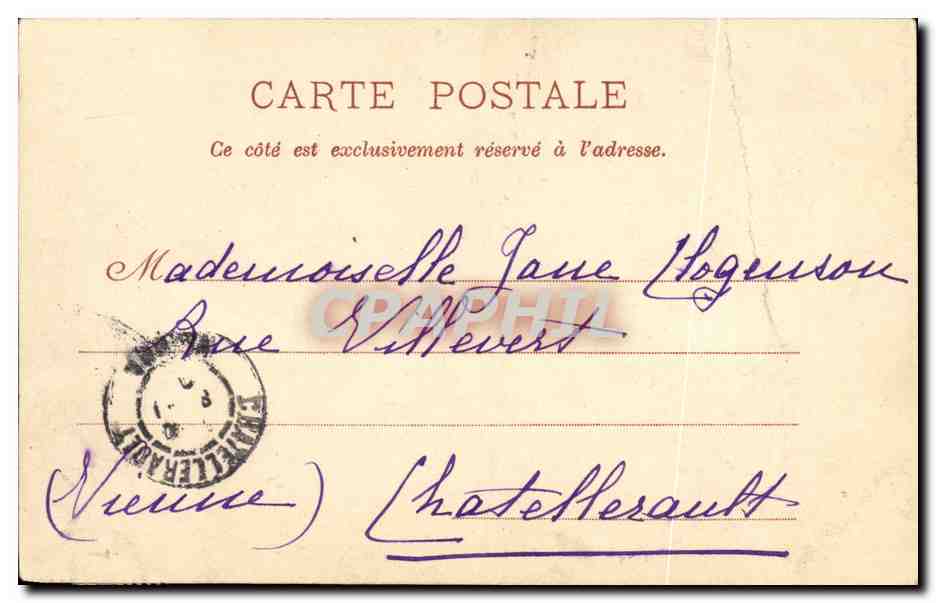 CARTE POSTALE
Ce côté est exclusivement réservé à l'adresse.
Mademoiselle Jane Hogenson
CPAPHIL
Rue Villevert
CHATELLERAULT
(Vienne) Chatellerault